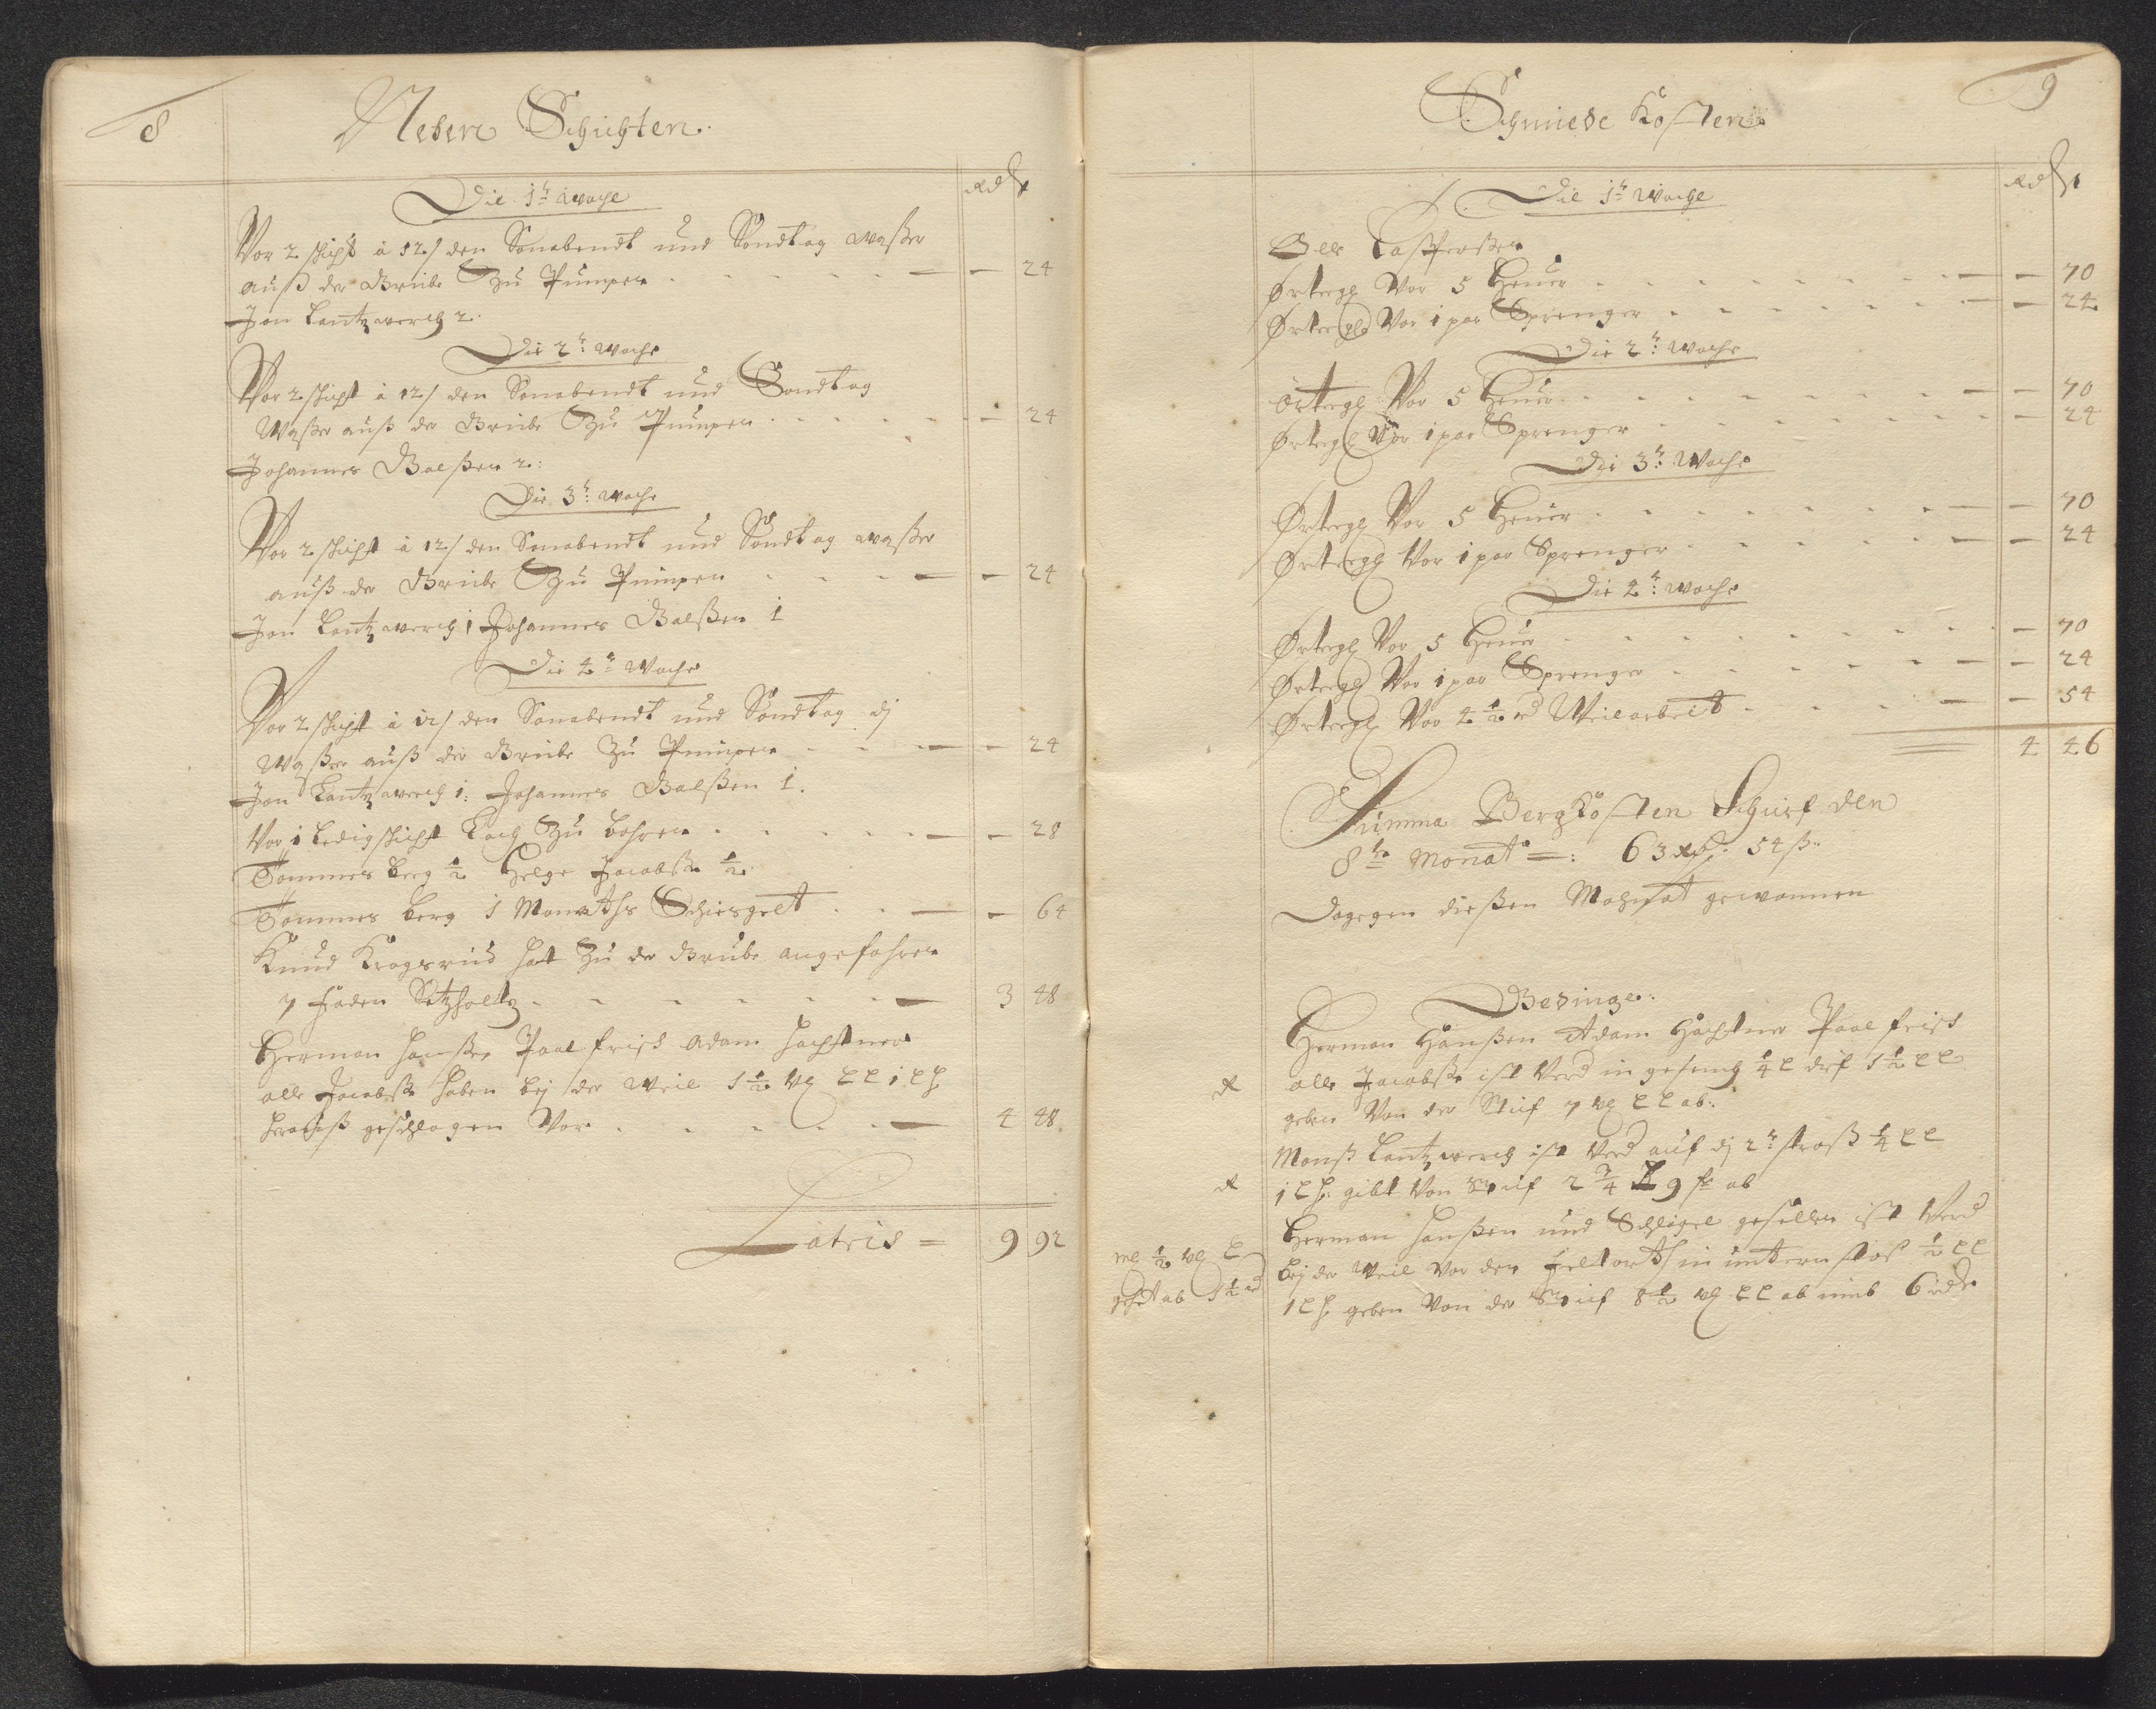 8
Neben Schichten.
Rd ß
Die 1te Woche
Vor 2 schicht a 12 ß den Sonabendt und Sondtag waßer
auß der Grube Zu Pumpen - - 24
Jon Lantzwerch 2.
Die 2te: Woche
Vor 2 schicht a 12 ß den Sonabendt und Sondtag
Waßer auß der Grube Zu Pumpen - 24
Johannes Balßen 2:
Die 3te: Woche
Vor 2 schicht a 12 ß den Sonabendt und Sondtag waßer
auß der Grube Zu Pumpen - 24
Jon Lantzwerch 1 Johannes Balßen 1
Die 4te Woche
Vor 2 schicht a 12 ß den Sonabendt und Sondtag dj
Waßer auß der Grube Zu Pumpen - 24
Jon Lantzwerch 1: Johannes Balßen 1.
Vor 1 Ledigschicht Loch Zu bohren - 28
Tommes berg ½ Helge Jacobßen ½
Tommes berg 1 Monaths Schiesgelt - 64
Knud Krogsrud hat Zu der Grube angefahren
7 Faden Setzholtz - 3 48
Herman Hanßen Paal frisch Adam Hachtner
olle Jacobßen haben bej der Weil 1½
geschlagen Vor - 4 48
Latris = 9 92
9
Schmiede Kosten
Rd ß
Die 1te Woche
Olle Casperßen
Örtergl Vor 5 Heuer - - 70
Örtergl Vor 1 par Sprenger - - 24
Die 2te: Woche
Örtergl Vor 5 Heuer - - 70
Örtergl Vor 1 par Sprenger - 24
Die 3te: Woche
Örtergl Vor 5 Heuer - - 70
Örtergl Vor 1 par Sprenger - - 24
Die 4te: Woche
Örtergl Vor 5 Heuer - 70
Örtergl Vor 1 par Sprenger - - 24
Örtergl Vor 4½ Weilarbeit - - 54
4 46
Summa Bergkosten Schurf den
8te Monat =: 63 Rd: 54 ß.
Dagegen dießen Mohnat gewonnen
Gedinge:
Herman Hanßen Adam Hachtner Paal frisch
olle Jacobßen ist Verd in gesenck ¼ L dief 1½ LL
geben Von der Stuf 7 LL ab:
Monß Lantzwerch ist Verd auf dj 2te: stroß ¼ LL
1 L gibt Von Stuf 2¾ 9 ab
Herman Hanßen und Schlegel gesellen ist Verd
bej der Weil Vor den Feltorth in untern stoß ½ LL
1 L geben Von der Stuf 8½ LL ab umb 6 rd
½ L
gehet ab 1½ rd